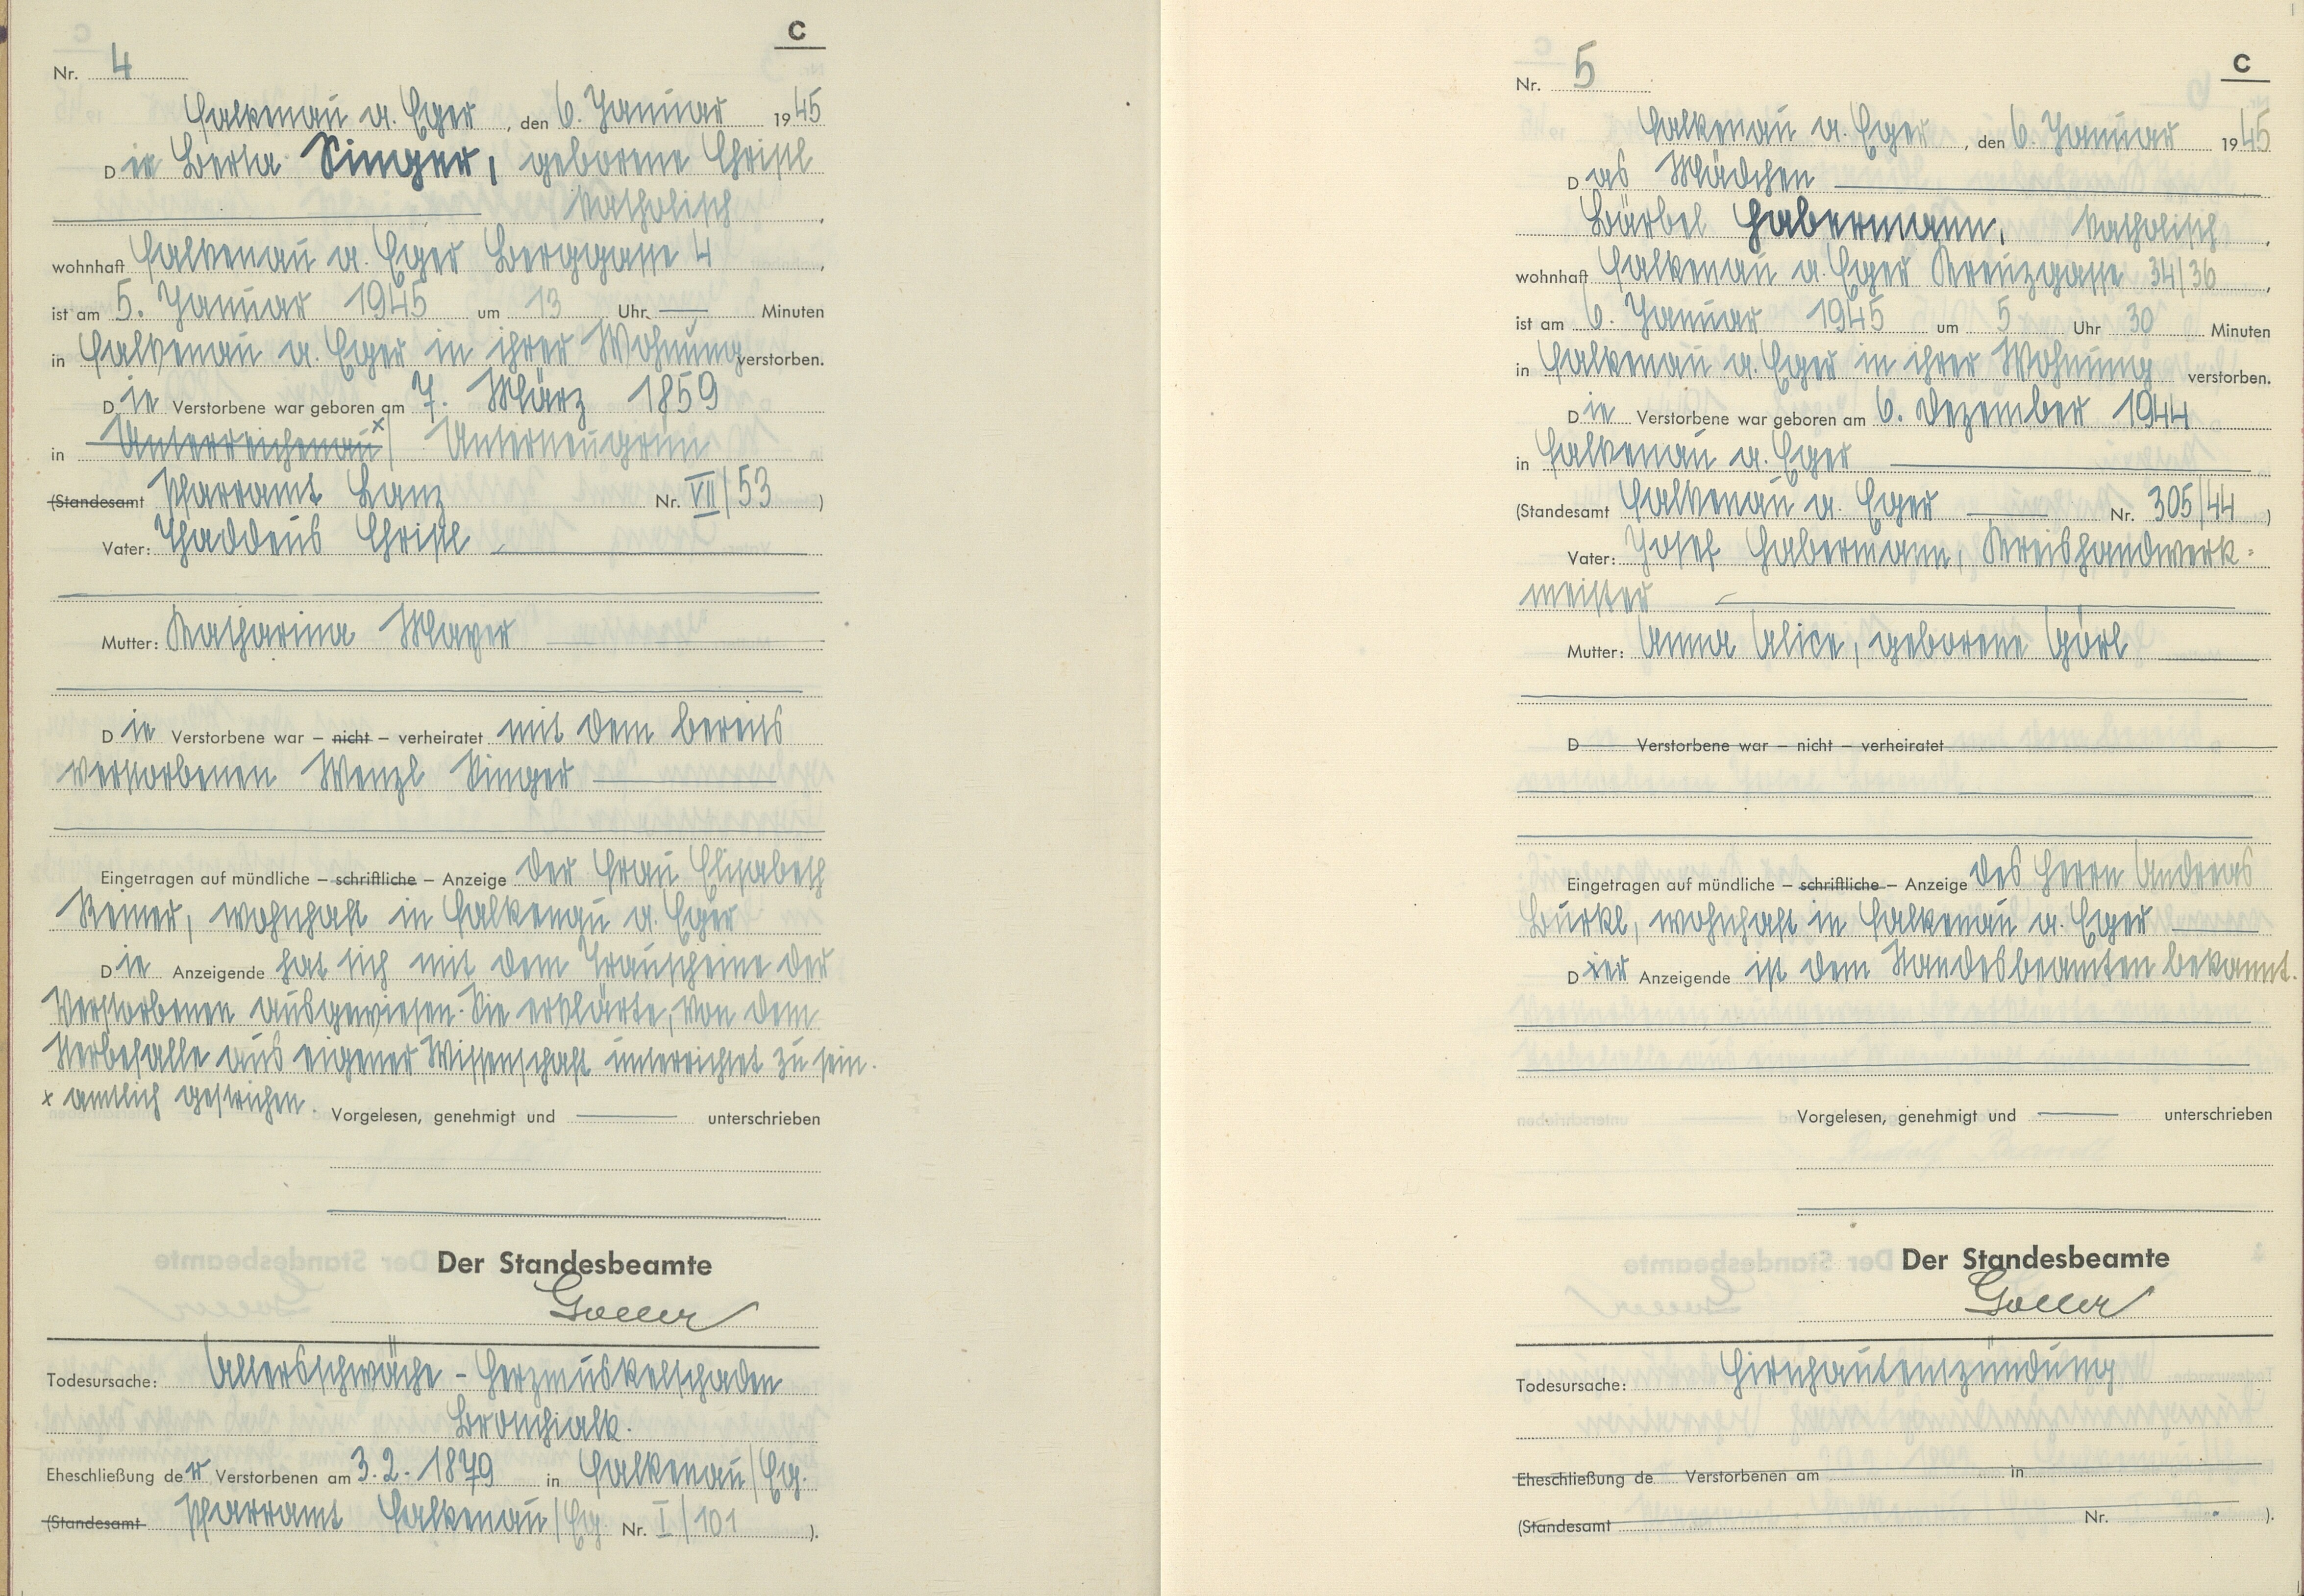 C
Nr. 4
Falkenau a. Eger, den 6. Januar 1945
Die Berta Singer, geborene Christl
katholisch,
wohnhaft Falkenau a. Eger Berggasse 4,
ist am 5. Januar 1945 um 13 Uhr — Minuten
in Falkenau a. Eger in ihrer Wohnung verstorben.
Die Verstorbene war geboren am 7. März 1859
in Unterreichenau x / Unterneugrün
(Standesamt Pfarramt Lanz Nr. VII/53)
Vater: Thaddeus Christl
Mutter: Katharina Mayer
Die Verstorbene war – nicht – verheiratet mit dem bereits
verstorbenen Wenzl Singer
Eingetragen auf mündliche – schriftliche – Anzeige der Frau Elisabeth
Reiner, wohnhaft in Falkenau a. Eger
Die Anzeigende hat sich mit dem Trauscheine der
Verstorbenen ausgewiesen. Sie erklärte, von dem
Sterbefalle aus eigener Wissenschaft unterrichtet zu sein.
x amtlich gestrichen.
Vorgelesen, genehmigt und — unterschrieben
Der Standesbeamte
Goller
Todesursache: Altersschwäche - Herzmuskelschaden
Bronchialk.
Eheschließung der Verstorbenen am 3.2.1879 in Falkenau/Eg.
(Standesamt Pfarramt Falkenau/Eg. Nr. I/101).
C
Nr. 5
Falkenau a. Eger, den 6. Januar 1945
Das Mädchen
Bärbel Habermann, katholisch,
wohnhaft Falkenau a. Eger Kreuzgasse 34/36,
ist am 6. Januar 1945 um 5 Uhr 30 Minuten
in Falkenau a. Eger in ihrer Wohnung verstorben.
Die Verstorbene war geboren am 6. Dezember 1944
in Falkenau a. Eger
(Standesamt Falkenau a. Eger Nr. 305/44)
Vater: Josef Habermann, Kreishandwerk-
meister
Mutter: Anna Alice, geborene Görl
D Verstorbene war – nicht – verheiratet
Eingetragen auf mündliche – schriftliche – Anzeige des Herrn Andreas
Burkl, wohnhaft in Falkenau a. Eger
Der Anzeigende ist dem Standesbeamten bekannt.
Vorgelesen, genehmigt und — unterschrieben
Der Standesbeamte
Goller
Todesursache: Hirnhautentzündung
Eheschließung de Verstorbenen am in
(Standesamt Nr. ).